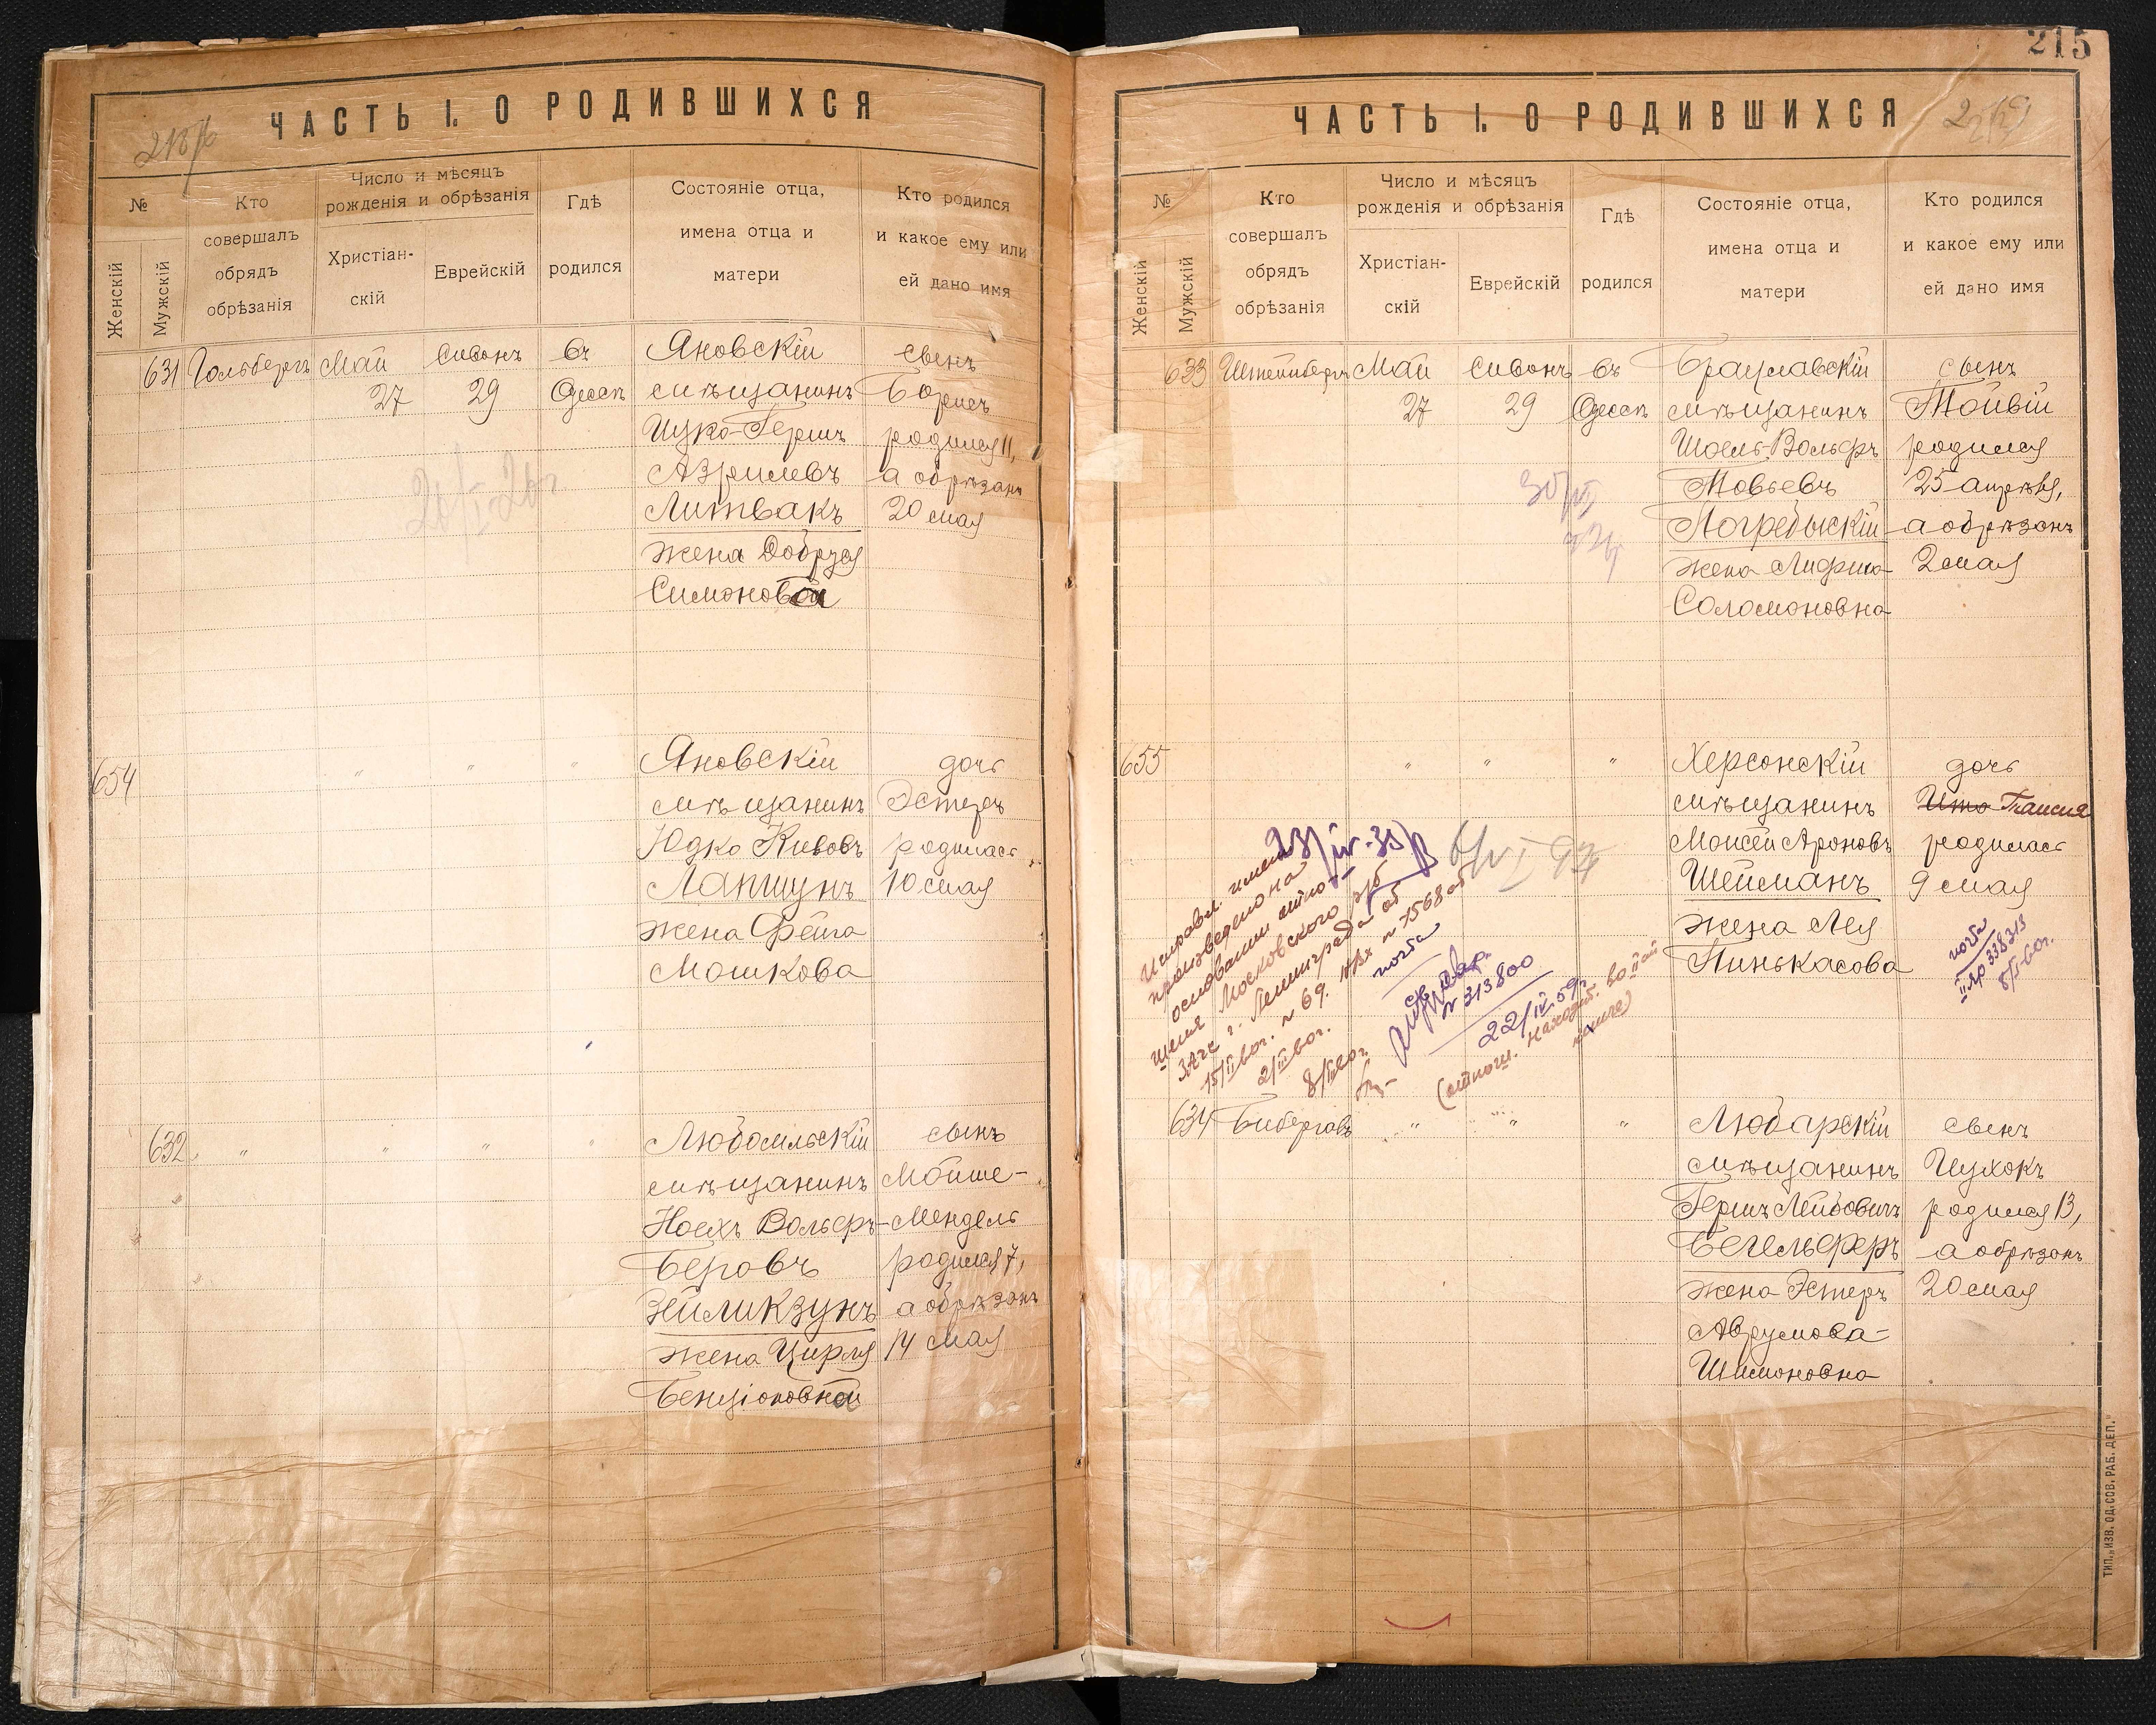 ЧАСТЬ I. О РОДИВШИХСЯ
№
Женскій
Мужскій
Кто
совершалъ
обрядъ
обрѣзанія
Число и мѣсяцъ
рожденія и обрѣзанія
Христіан-
скій
Еврейскій
Гдѣ
родился
Состояніе отца,
имена отца и
матери
Кто родился
и какое ему или
ей дано имя
631 Гольбергъ Май Сивонъ въ Яновскій сынъ
27 29 Одессѣ мѣщанинъ Борисъ
Ицко-Гершъ родился 11,
Азрилевъ а обрѣзанъ
Литвакъ 20 мая
жена Добруся
Симоновна
654 " " " Яновскій дочь
мѣщанинъ Эстеръ
Юдко Кивовъ родилась
Лапшунъ 10 мая
жена Фейга
Мошкова
632 " " " " Любомльскій сынъ
мѣщанинъ Мойше-
Ноехъ Вольфъ- Мендель
Беровъ родился 7,
Зейликзунъ а обрѣзанъ
жена Цирля 14 мая
Бенціоновна
215
ЧАСТЬ I. О РОДИВШИХСЯ
№
Женскій
Мужскій
Кто
совершалъ
обрядъ
обрѣзанія
Число и мѣсяцъ
рожденія и обрѣзанія
Христіан-
скій
Еврейскій
Гдѣ
родился
Состояніе отца,
имена отца и
матери
Кто родился
и какое ему или
ей дано имя
633 Штейнбергъ Май Сивонъ въ Брацлавскій сынъ
27 29 Одессѣ мѣщанинъ Тойвій
Шоель-Вольфъ родился
Товьевъ 25 апрѣля,
Погребыскій а обрѣзанъ
жена 2 мая
Соломоновна
655 " " " Херсонскій дочь
мѣщанинъ Таисия
Моисей Ароновъ родилась
Шейманъ 9 мая
жена Лея
Пинькасова
23/IV-35
Исправл. имени
произведено на
основании отно-
шения Московского р/б
ЗАГС г. Ленинграда об
15/II 60г. № 69. № 7568 от
2/III 60г.
8/III 60г.
почта
№ 313800
22/IV 59г.
(отнош. находит. во II ой
книге)
почта
II ЯР 338313
634 " " " Любарскій сынъ
мѣщанинъ Ицхокъ
Гершъ Лейбовичъ родился 13,
Бегельферъ а обрѣзанъ
жена Эстеръ 20 мая
Аврумова-
Шимоновна
ТИП. „ИЗВ. ОД. СОВ. РАБ. ДЕП."